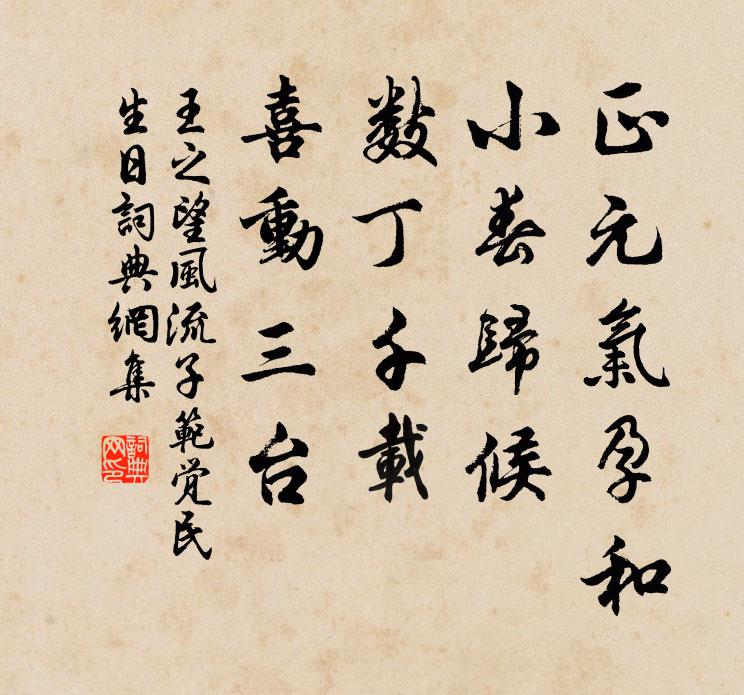 正元氣孕和
小春歸候
數丁千載
喜動三台
王之望風流子範覚民
生日詞典網集
詞典
网印